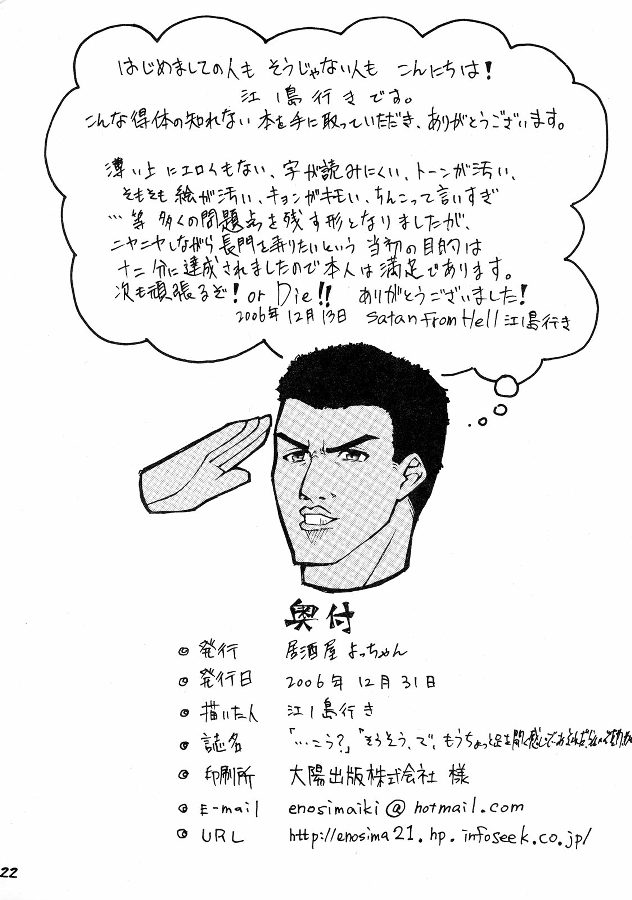 はじめましての人も そうじゃない人も こんにちは!
江ノ島行きです。
こんな得体の知れない本を手に取っていただき、ありがとうございます。
薄い上にエロくもない、字が読みにくい、トーンが汚い、
そもそも絵が汚い、キョンがキモい、ちんこって言いすぎ
…等 多くの問題点を残す形となりましたが、
ニヤニヤしながら長門を弄りたいという 当初の目的は
十二分に達成されましたので本人は満足であります。
次も頑張るぞ! or Die!! ありがとうございました!
2006年12月13日 Satan From Hell 江ノ島行き
奥付
◎ 発行 居酒屋よっちゃん
◎ 発行日 2006年 12月 31日
◎ 描いた人 江ノ島行き
◎ 誌名 「…こう?」「そうそう、で、もうちょっと足を開く感じで
◎ 印刷所 大陽出版株式会社 様
◎ E-mail enosimaiki@hotmail.com
◎ URL http://enosima21.hp.infoseek.co.jp/
22